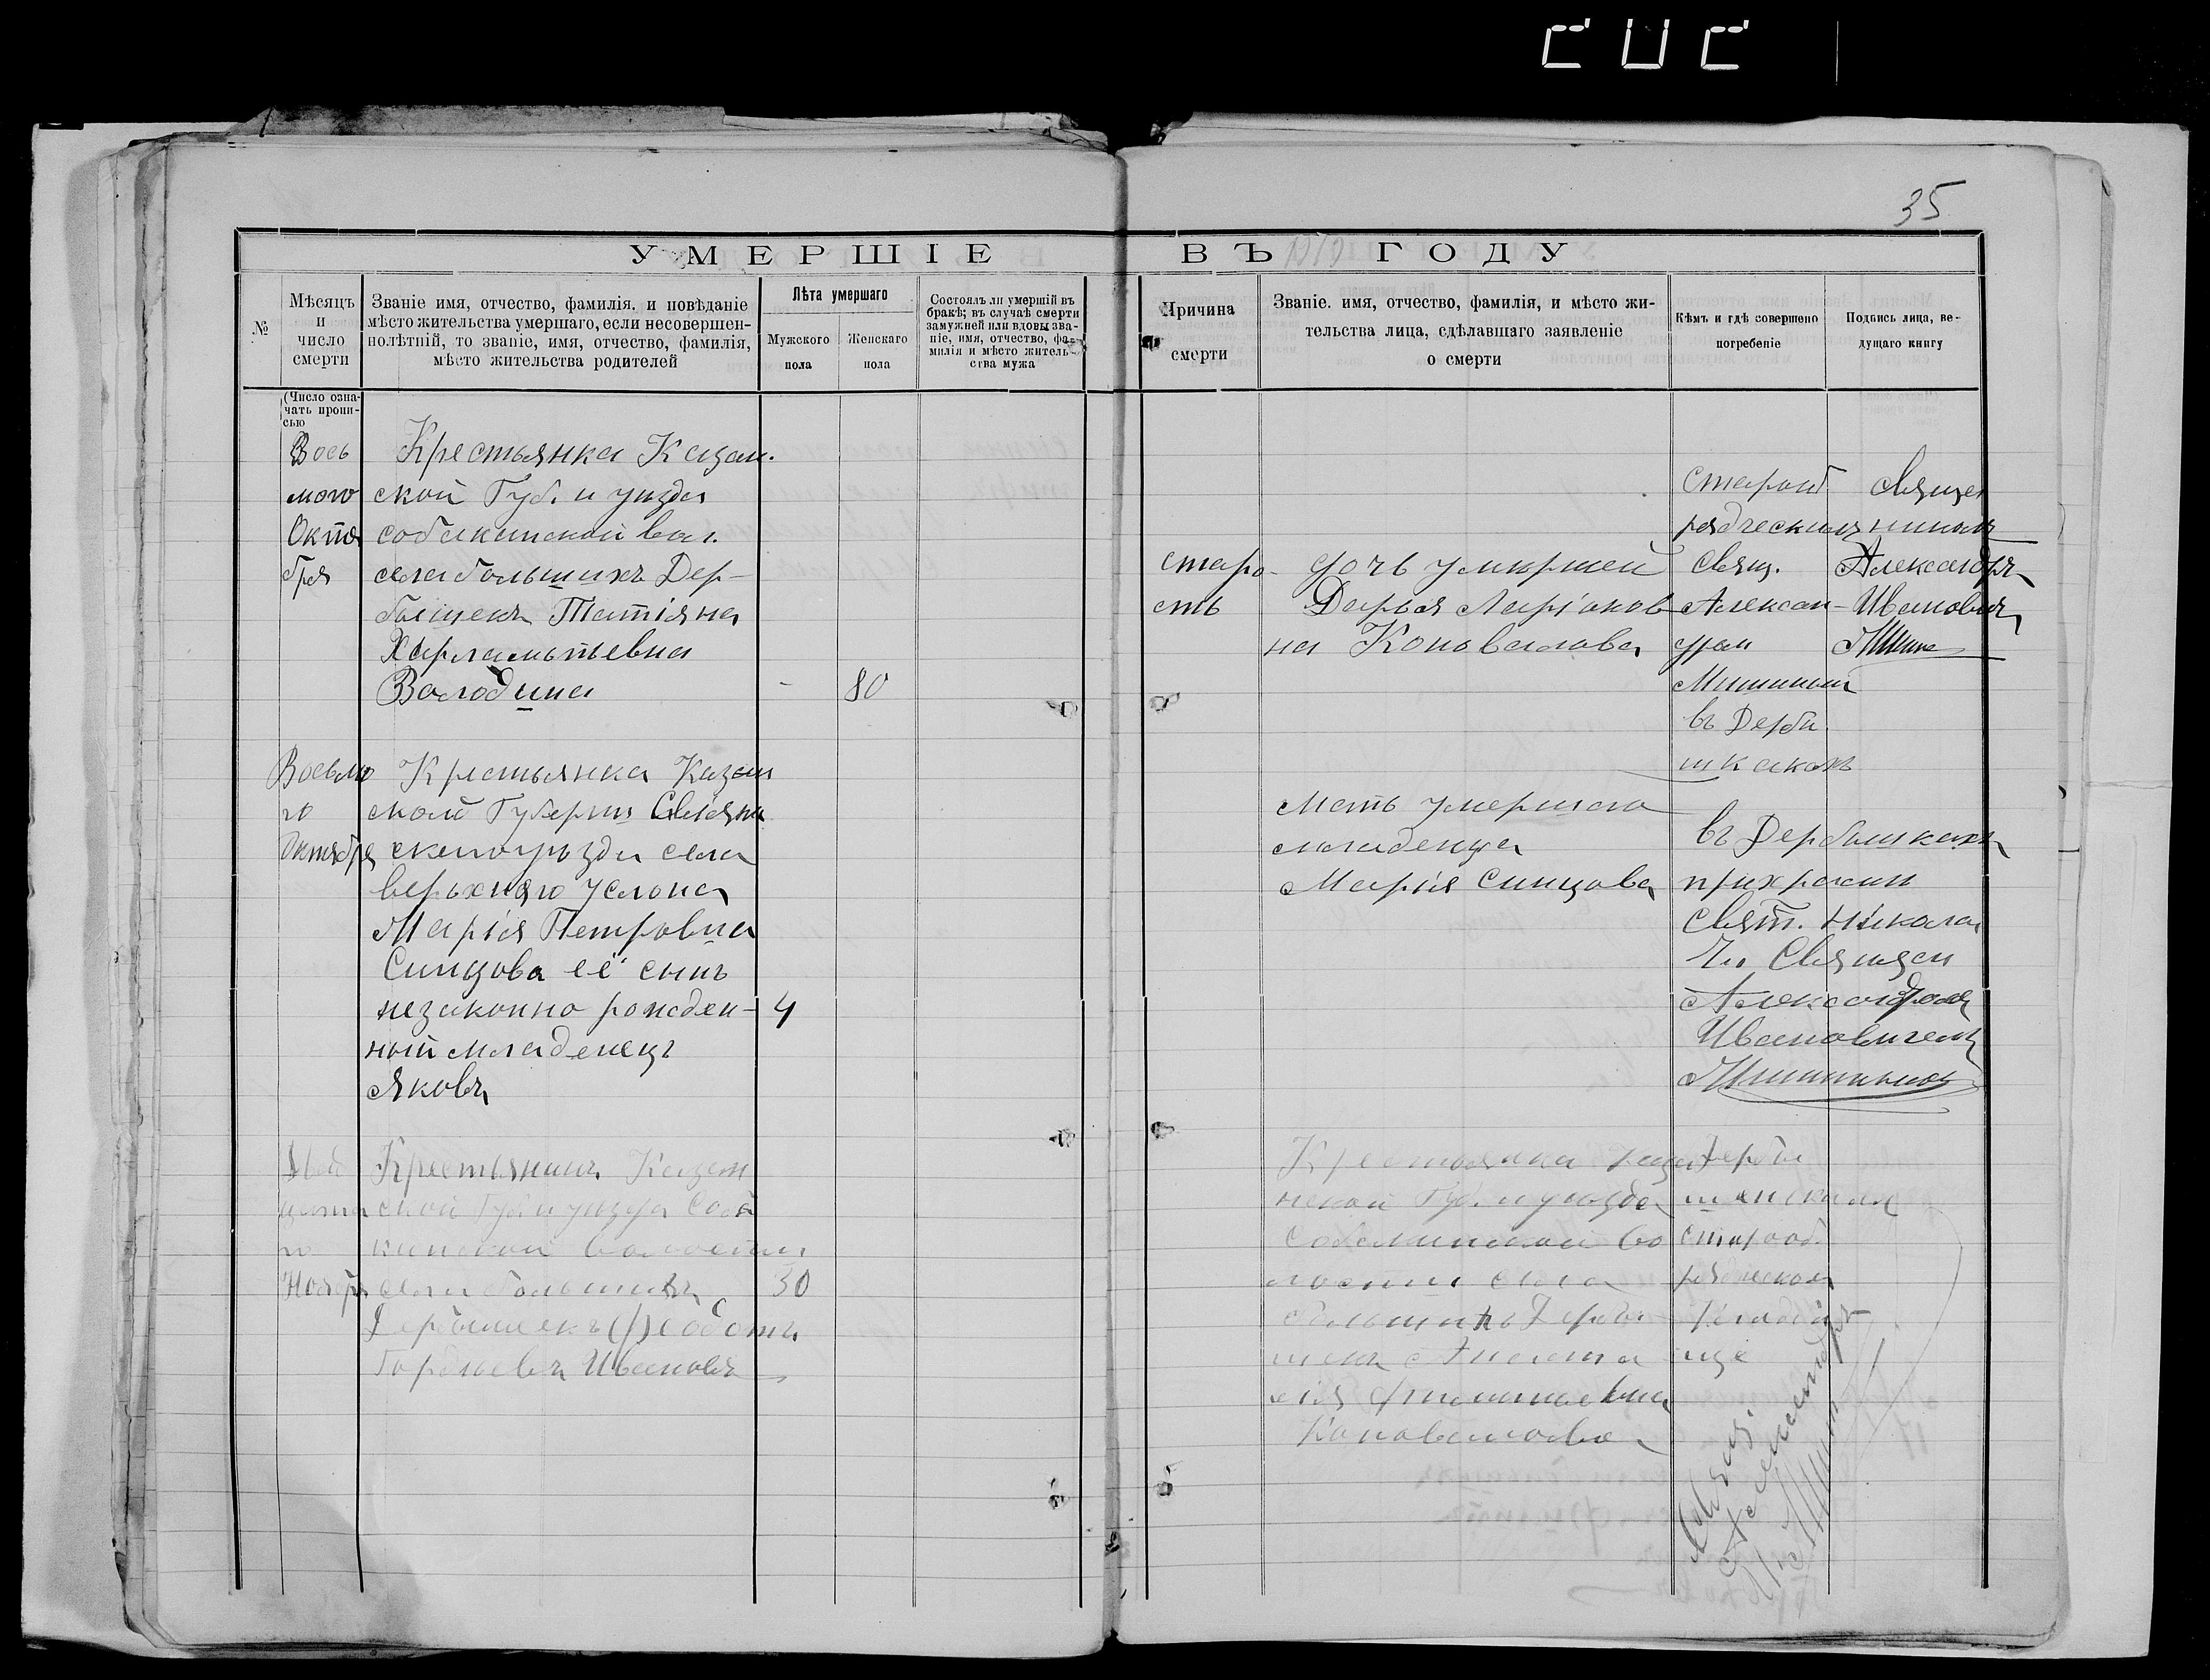 35
УМЕРШІЕ ВЪ 1910 ГОДУ
№
Мѣсяцъ
и
число
смерти
Званіе имя, отчество, фамилія. и повѣданіе
мѣсто жительства умершаго, если несовершен-
нолѣтній, то званіе, имя, отчество, фамилія,
мѣсто жительства родителей
Лѣта умершаго
Мужского
пола
Женскаго
пола
Состоялъ ли умершій въ
бракѣ; въ случаѣ смерти
замужней или вдовы зва-
ніе, имя, отчество, фа-
милія и мѣсто житель-
ства мужа
Причина
смерти
Званіе. имя, отчество, фамилія, и мѣсто жи-
тельства лица, сдѣлавшаго заявленіе
о смерти
Кѣмъ и гдѣ совершено
погребеніе
Подпись лица, ве-
дущаго книгу
(Число озна-
чать пропи-
сью
Вось
мого
Октя
бря
Крестьянка Казан.
ской Губ. и уѣзда
собакинской вол.
села большихъ Дер-
бышекъ Татіяна
Харлампьевна
Володина
-
80
старо-
сть
дочь умершей
Дарья Ларіонов
на Коновалова
Старооб
рядческимъ
свящ.
Алексан-
дром
Мишиным
въ Дерби
шкахъ
священ
никъ
Александръ
Ивановъ
Восьмо
го
Октября
Крестьянка Казан
ской Губерни Свіяж
скаго уѣзда села
верьхняго Услона
Марія Петровна
Синцова её сынъ
незаконно рожден-
ный младенецъ
Яковъ
4
Мать умершаго
младенца
Марія Синцова
въ Дербышкахъ
при храми
Свят. Никола
Чу. Священ
Александром
Ивановичем
Мишиным
Двад
цата
го
Ноября
Крестьянинъ Казан
ской Губ и уѣзда Соба
кинской волости
села большихъ
Дербышекъ Феодотъ
Гордѣевъ Ивановъ
30
Крестьянка Каза
нской Губ. и уѣзда
Собакинской во
лости села
большихъ Дербы
шекъ Анаста
сія
Коновалова
Дерби
шенскимъ
старооб
рядческом
кладби
ще
Свящ.
Александръ